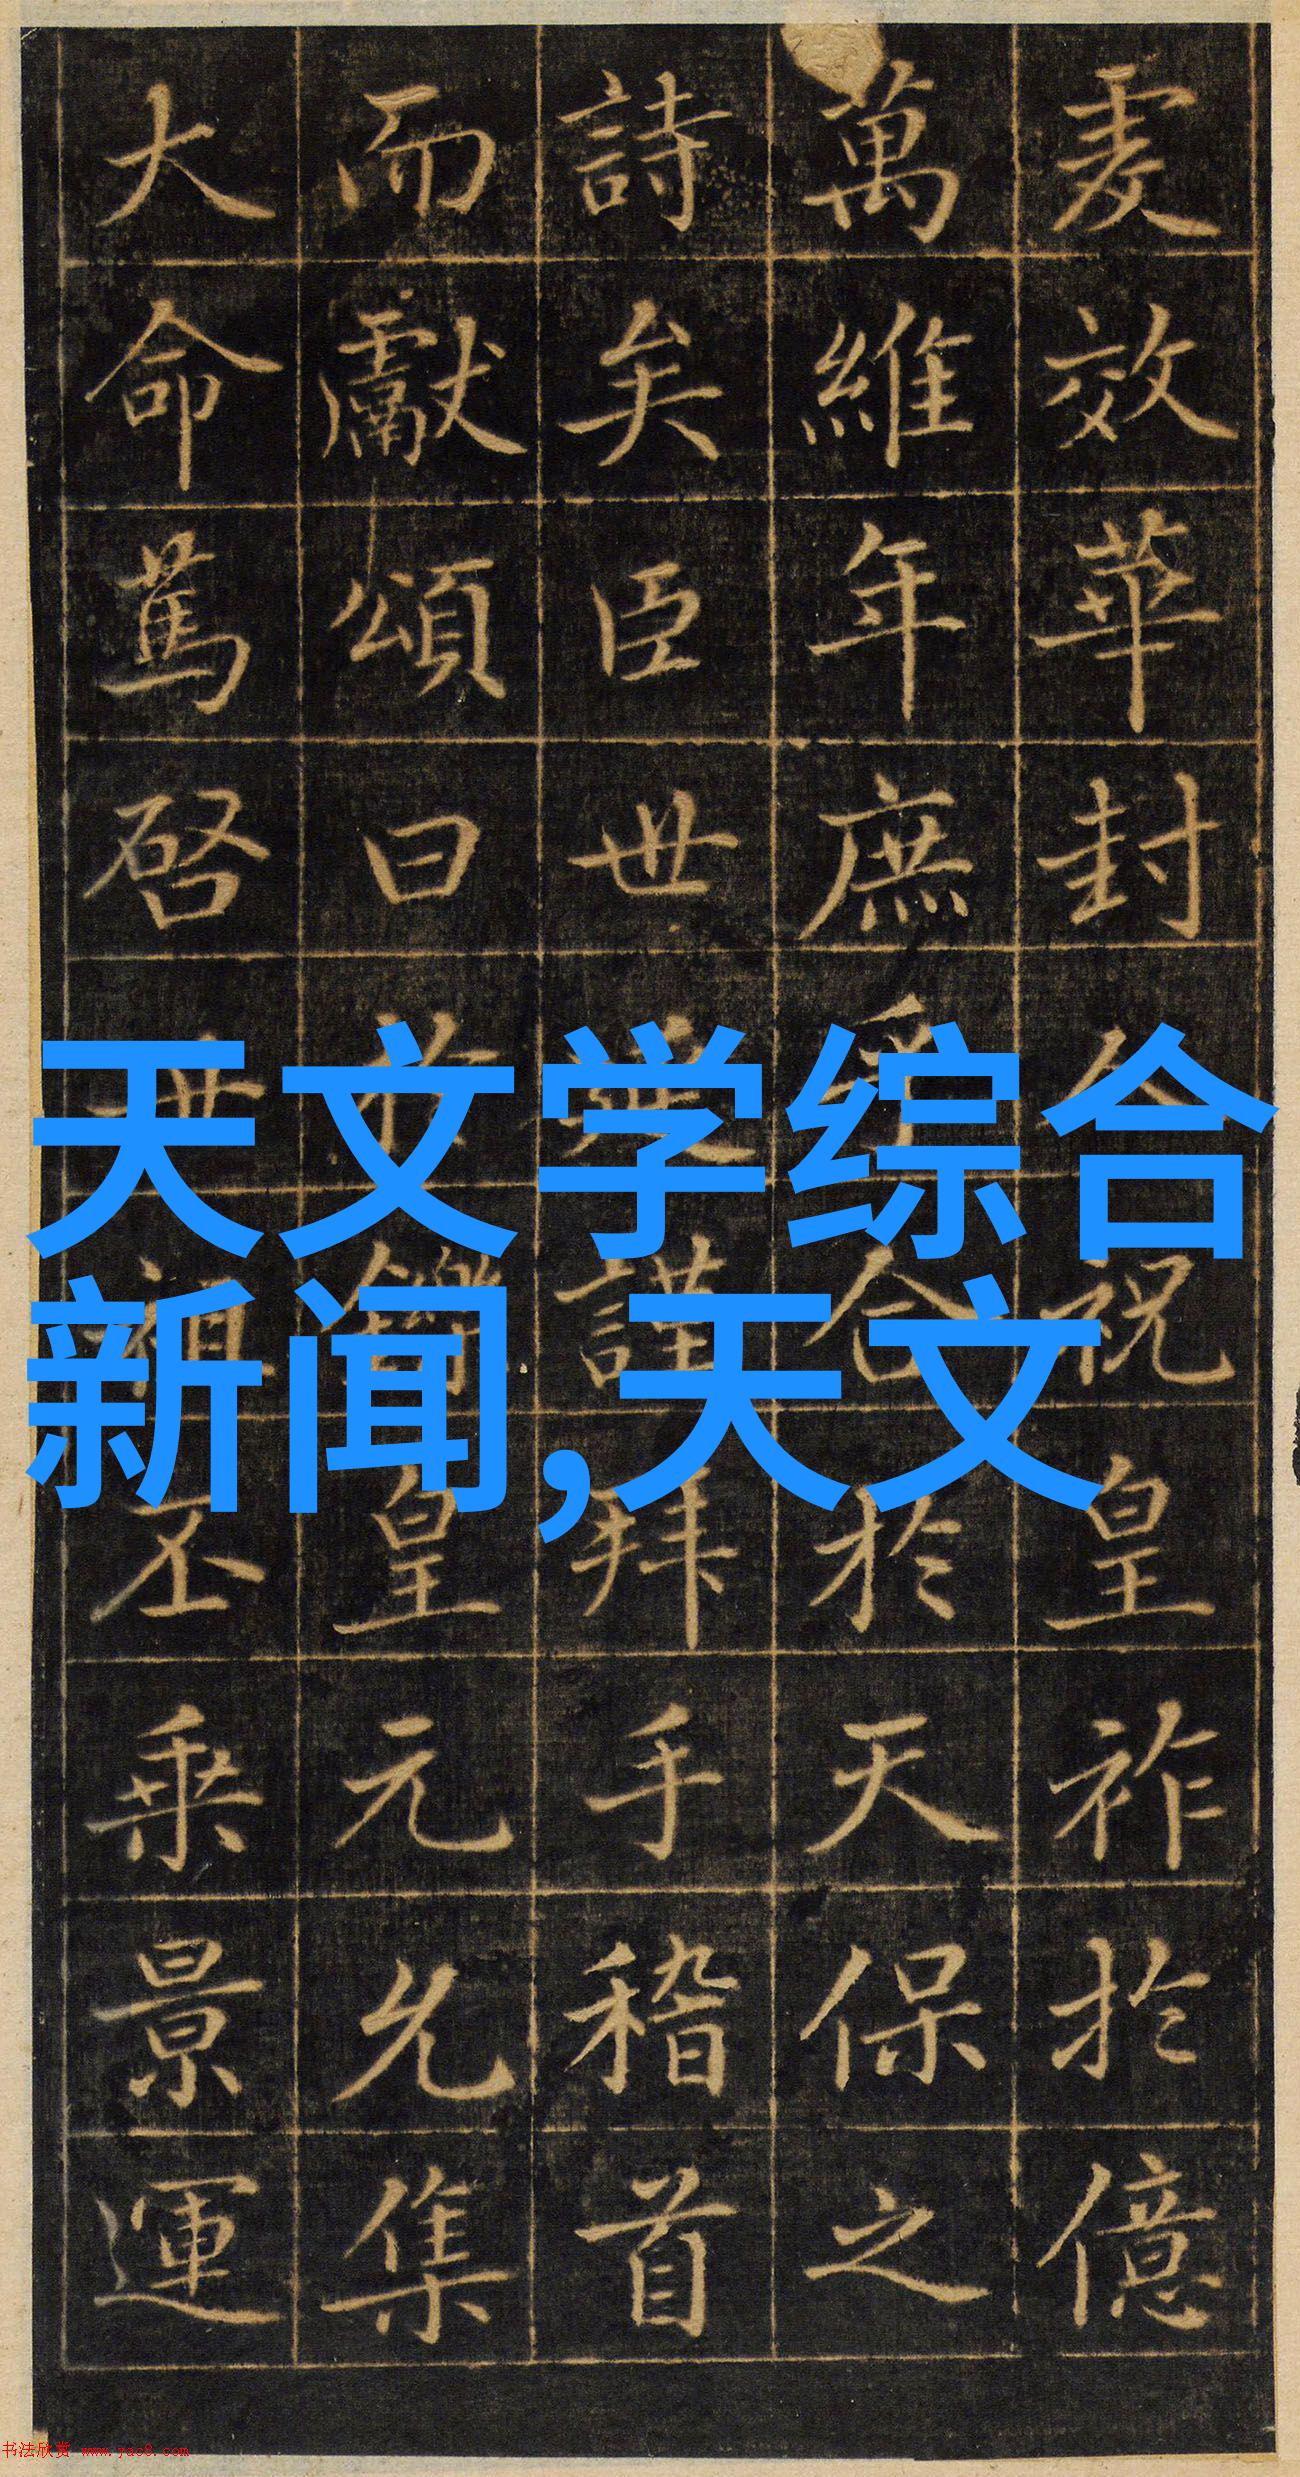 爰效華封祝皇祚於億
萬維年庶乎合於天保之
詩矣臣世延謹拜手稽首
而獻頌曰於鑠皇元允集
大命篤啓世祖丕乘景運
天文学综合
新闻,天文
书法欣赏 www.yac8.com